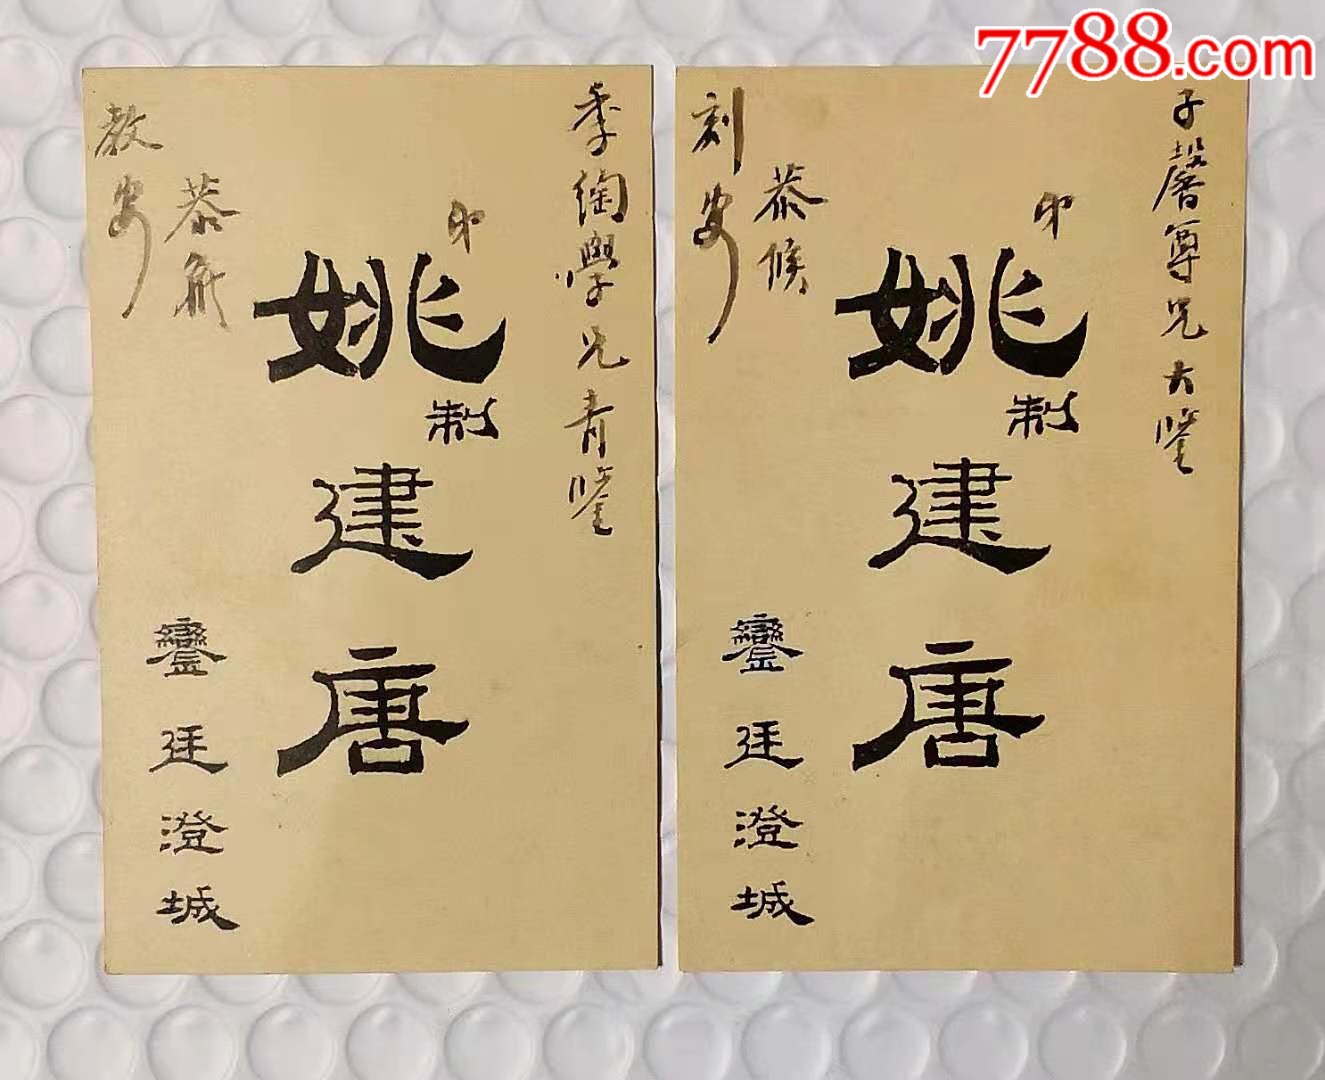 7788.com
季陶學兄青鑒
弟
姚建唐
制
鑾廷澄城
恭候
教安
子馨尊兄大鑒
弟
姚建唐
制
鑾廷澄城
恭候
刻安